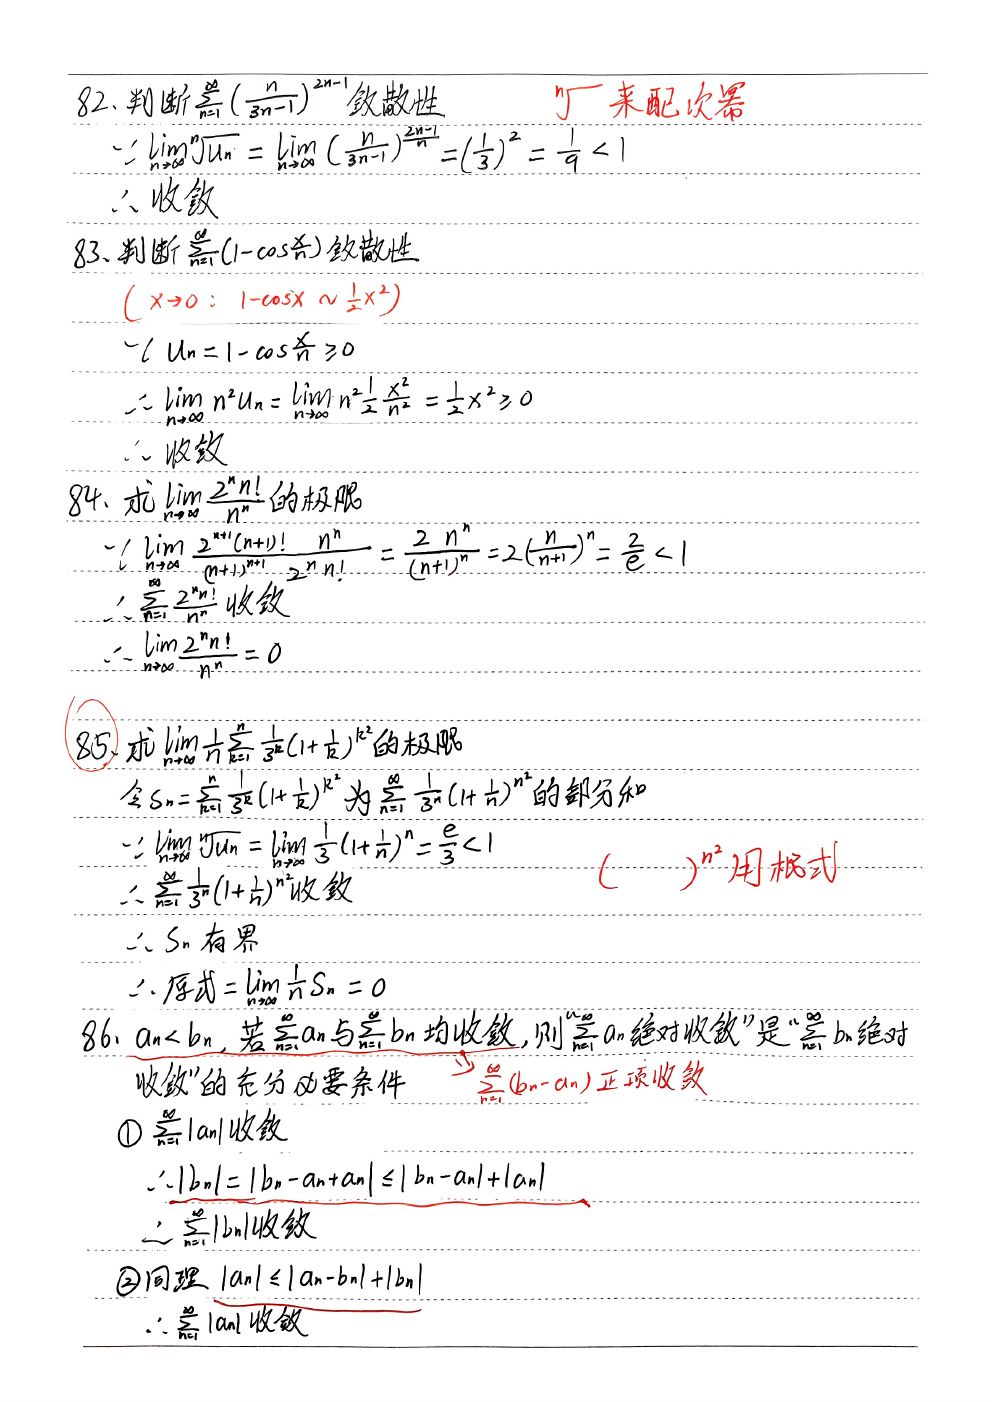 82、判断 ∑_{n=1}^{∞} (n/(3n-1))^{2n-1} 敛散性  ⁿ√ 来配次幂
∵ lim_{n→∞} ⁿ√Un = lim_{n→∞} (n/(3n-1))^{(2n-1)/n} = (1/3)² = 1/9 < 1
∴ 收敛
83、判断 ∑_{n=1}^{∞} (1-cos x/n) 敛散性
( x→0 : 1-cosx ~ ½x² )
∵ Un = 1-cos x/n ≥ 0
∴ lim_{n→∞} n²Un = lim_{n→∞} n² ½ x²/n² = ½x² ≥ 0
∴ 收敛
84、求 lim_{n→∞} 2ⁿn!/nⁿ 的极限
∵ lim_{n→∞} 2^{n+1}(n+1)!/(n+1)^{n+1} nⁿ/2ⁿn! = 2nⁿ/(n+1)ⁿ = 2(n/(n+1))ⁿ = 2/e < 1
∴ ∑_{n=1}^{∞} 2ⁿn!/nⁿ 收敛
∴ lim_{n→∞} 2ⁿn!/nⁿ = 0
85、求 lim_{n→∞} 1/n ∑_{k=1}^{n} 1/3^k (1+1/k)^{k²} 的极限
令 Sn = ∑_{k=1}^{n} 1/3^k (1+1/k)^{k²} 为 ∑_{n=1}^{∞} 1/3ⁿ (1+1/n)^{n²} 的部分和
∵ lim_{n→∞} ⁿ√Un = lim_{n→∞} 1/3 (1+1/n)ⁿ = e/3 < 1
(  )^{n²} 用根式
∴ ∑_{n=1}^{∞} 1/3ⁿ (1+1/n)^{n²} 收敛
∴ Sn 有界
∴ 原式 = lim_{n→∞} 1/n Sn = 0
86、an < bn, 若 ∑_{n=1}^{∞} an 与 ∑_{n=1}^{∞} bn 均收敛, 则 "∑_{n=1}^{∞} an 绝对收敛" 是 "∑_{n=1}^{∞} bn 绝对
收敛" 的充分必要条件  ⇒ ∑_{n=1}^{∞} (bn-an) 正项收敛
① ∑_{n=1}^{∞} |an| 收敛
∴ |bn| = |bn-an+an| ≤ |bn-an|+|an|
∴ ∑_{n=1}^{∞} |bn| 收敛
② 同理 |an| ≤ |an-bn|+|bn|
∴ ∑_{n=1}^{∞} |an| 收敛